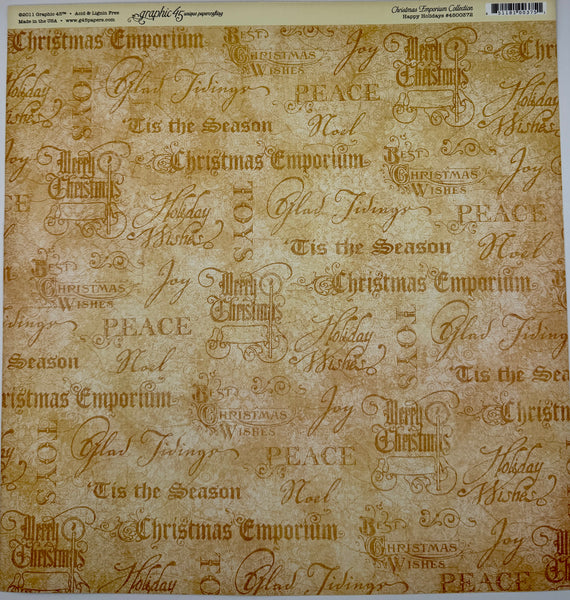 ©2011 Graphic 45™ • Acid & Lignin Free
Made in the USA • www.g45papers.com
graphic 45 unique papercrafting
Christmas Emporium Collection
Happy Holidays #4500372
Christmas Emporium
TOYS
Glad Tidings
Best Christmas Wishes
Joy
PEACE
Merry Christmas
Holiday Wishes
'Tis the Season
Noel
Merry Christmas
Christmas Emporium
Best Christmas Wishes
Joy
Holiday Wishes
TOYS
Glad Tidings
PEACE
'Tis the Season
Noel
Best Christmas Wishes
Joy
Merry Christmas
Christmas Emporium
Tidings
PEACE
Holiday Wishes
TOYS
Glad Tidings
'Tis the Season
Noel
Best Christmas Wishes
Joy
Merry Christmas
Christmas
Christmas Emporium
TOYS
Glad Tidings
PEACE
Holiday Wishes
'Tis the Season
Noel
Merry Christmas
Christmas Emporium
Best Christmas Wishes
Joy
Holiday
TOYS
Glad Tidings
PEACE